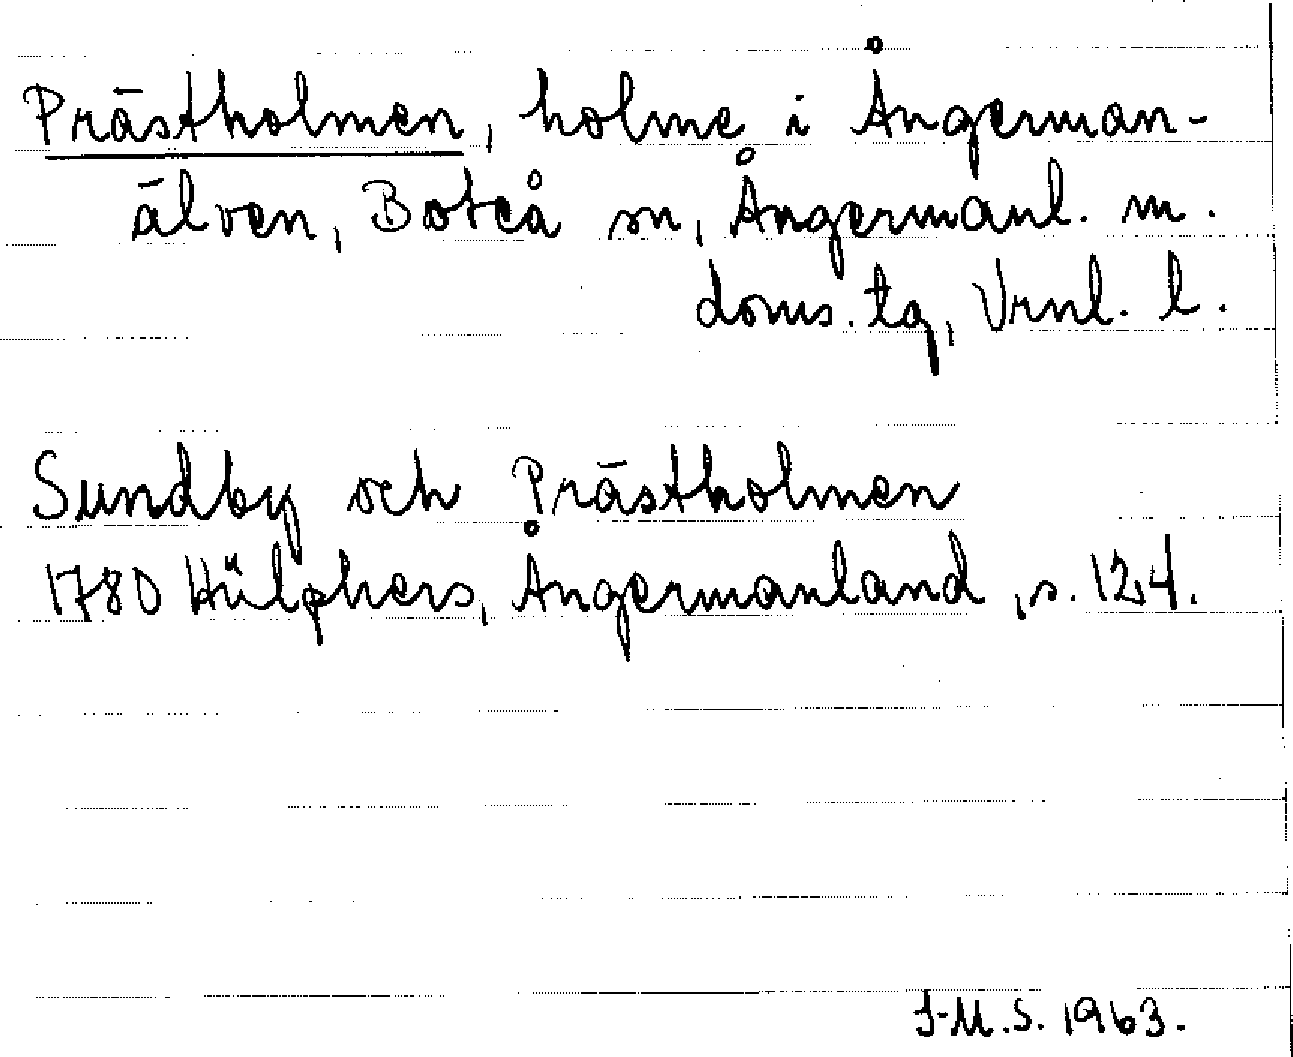 Prästholmen, holme i Ångerman-
älven, Boteå sn, Ångermanl. m.
doms. tg, Vrnl. l.
Sundby och Prästholmen
1780 Hülphers, Ångermanland, s. 124.
J-M.S. 1963.